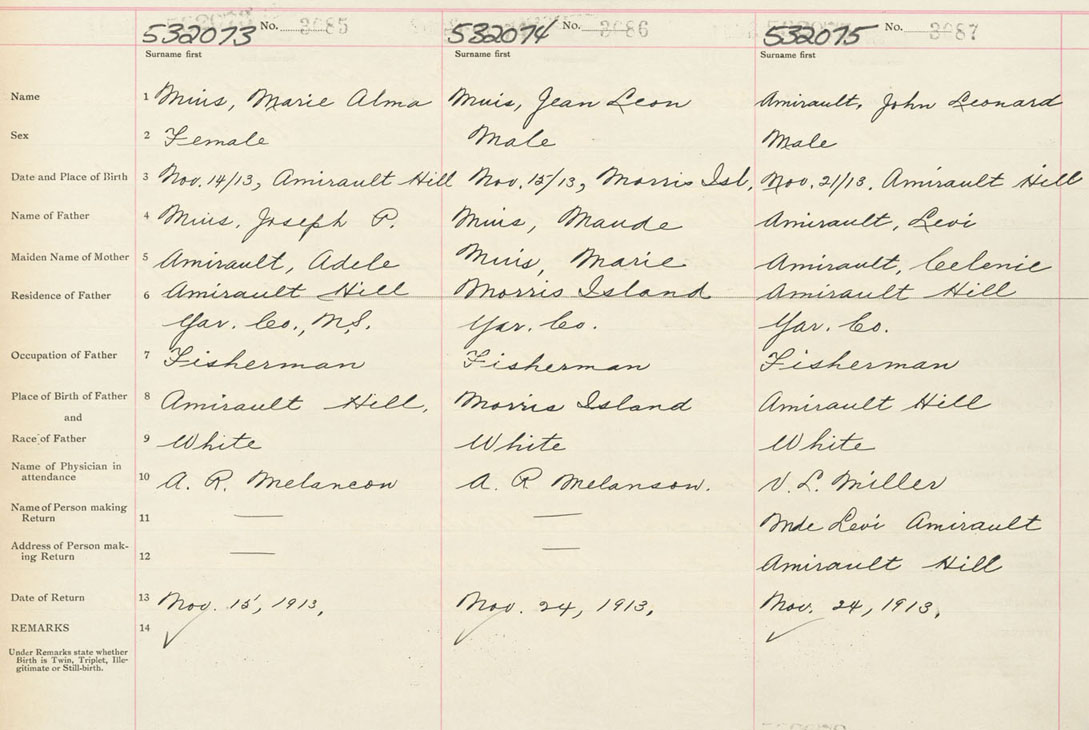 532073 No. 3085 532074 No. 3086 532075 No. 3087
Surname first Surname first Surname first
Name 1 Mius, Marie Alma Muis, Jean Leon Amirault, John Leonard
Sex 2 Female Male Male
Date and Place of Birth 3 Nov. 14/13, Amirault Hill Nov. 15/13, Morris Isl, Nov. 21/13. Amirault Hill
Name of Father 4 Mius, Joseph P. Mius, Maude Amirault, Levi
Maiden Name of Mother 5 Amirault, Adele Mius, Marie Amirault, Celenie
Residence of Father 6 Amirault Hill Morris Island Amirault Hill
Yar. Co., N.S. Yar. Co. Yar. Co.
Occupation of Father 7 Fisherman Fisherman Fisherman
Place of Birth of Father 8 Amirault Hill, Morris Island Amirault Hill
and
Race of Father 9 White White White
Name of Physician in
attendance 10 A. R. Melancon A. R Melanson. V. L. Miller
Name of Person making
Return 11 — — Mde Levi Amirault
Address of Person mak-
ing Return 12 — — Amirault Hill
Date of Return 13 Nov. 15, 1913, Nov. 24, 1913, Nov. 24, 1913,
REMARKS 14 ✓ ✓ ✓
Under Remarks state whether
Birth is Twin, Triplet, Ille-
gitimate or Still-birth.